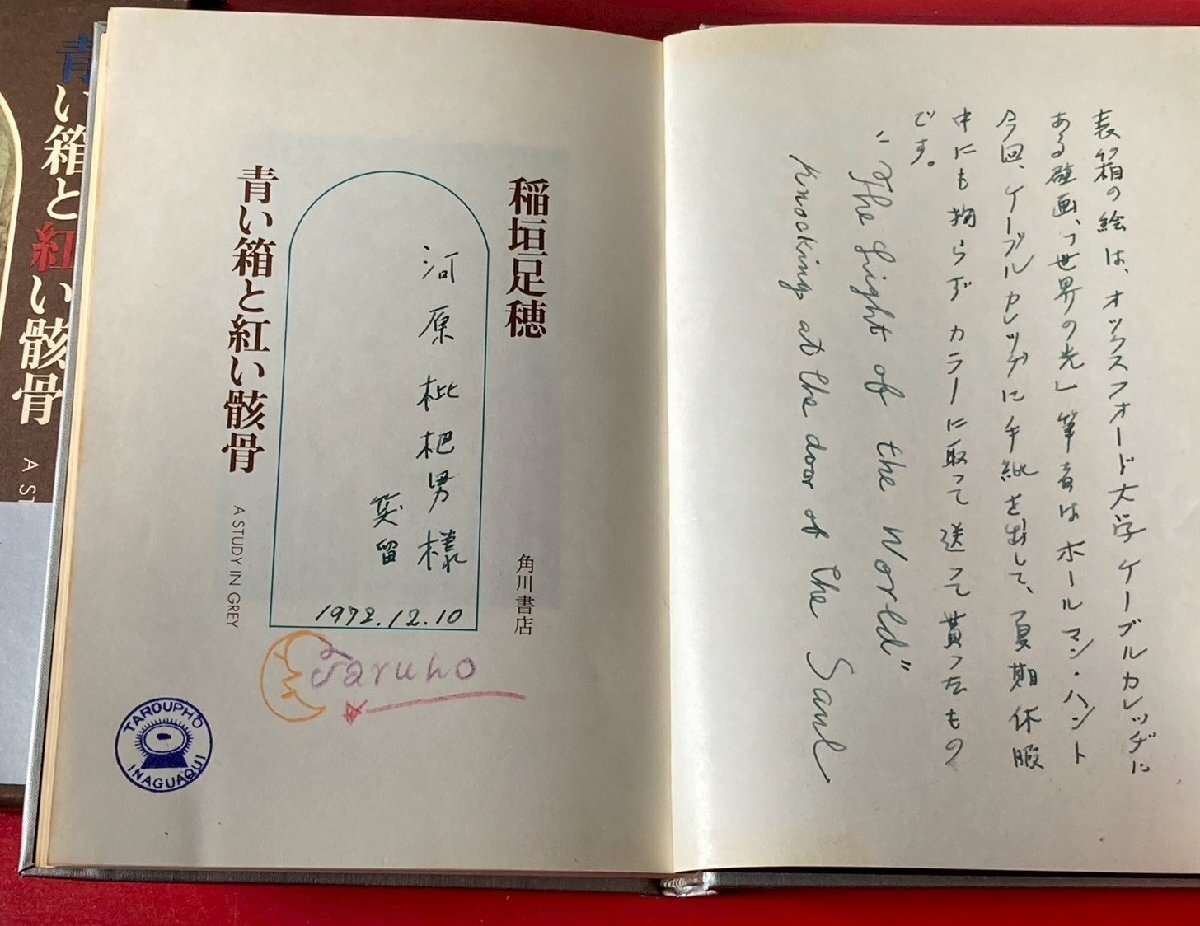 青い箱と紅い骸骨
A ST
表箱の絵は、オックスフォード大学ケーブルカレッヂに
ある壁画、「世界の光」筆者はホールマン・ハント
今回、ケーブルカレッヂに手紙を出して、夏期休暇
中にも拘らず カラーに取って送って貰ったもの
です。
"The Light of the World"
Knocking at the door of the Saul
稲垣足穂
角川書店
河原枇杷男様
笑留
1972.12.10
青い箱と紅い骸骨
A STUDY IN GREY
Taruho
TAROUPHO
INAGUAQUI